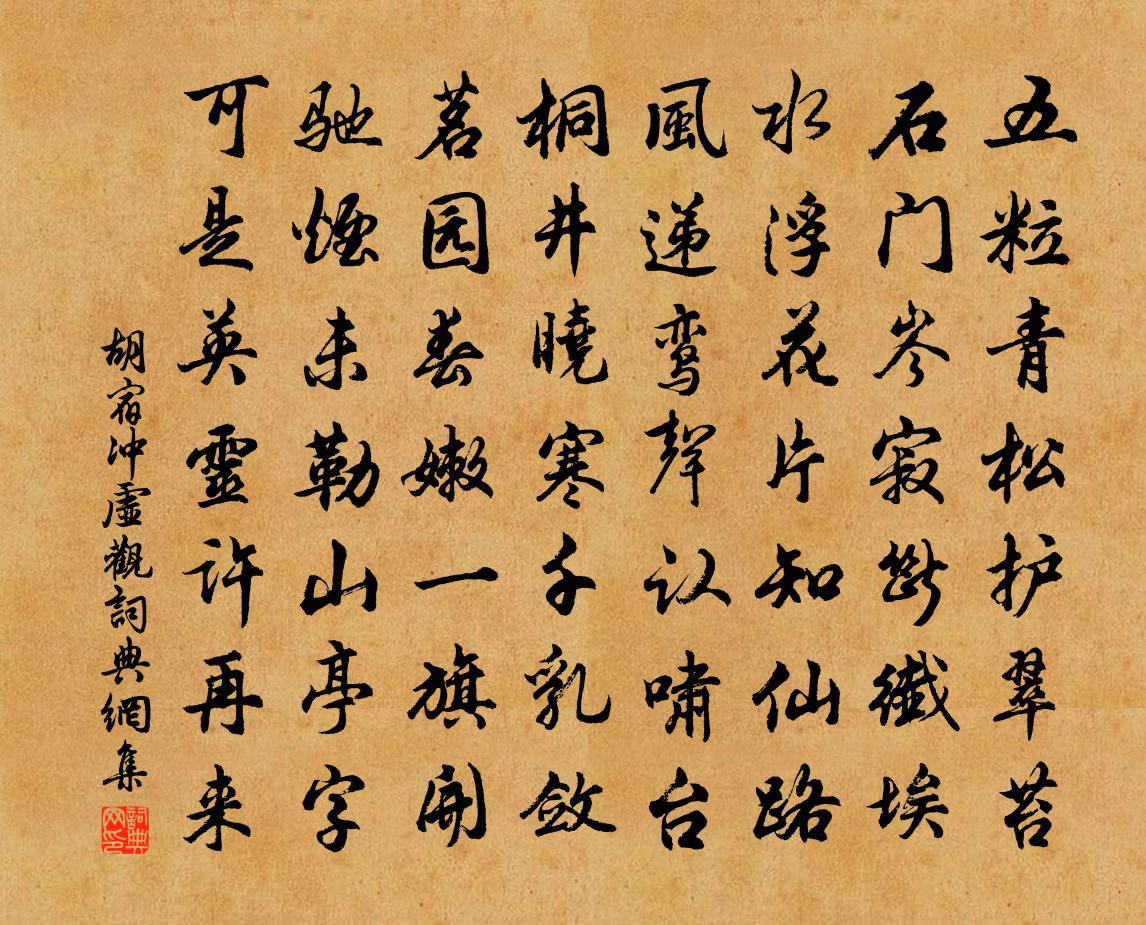 五粒青松护翠苔
石门岑寂断纖埃
水浮花片知仙路
風递鸾聲认啸台
桐井曉寒千乳斂
茗园春嫩一旗開
驰煙未勒山亭字
可是英靈许再来
胡宿冲虛觀詞典網集
詞典网印